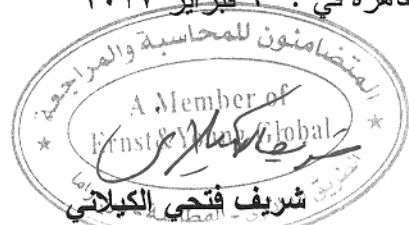 القاهرة في : ١ فبراير ٢٠١٧
المتضامنون للمحاسبة والمراجعة
A Member of
Ernst & Young Global
شريف فتحي الكيلاني